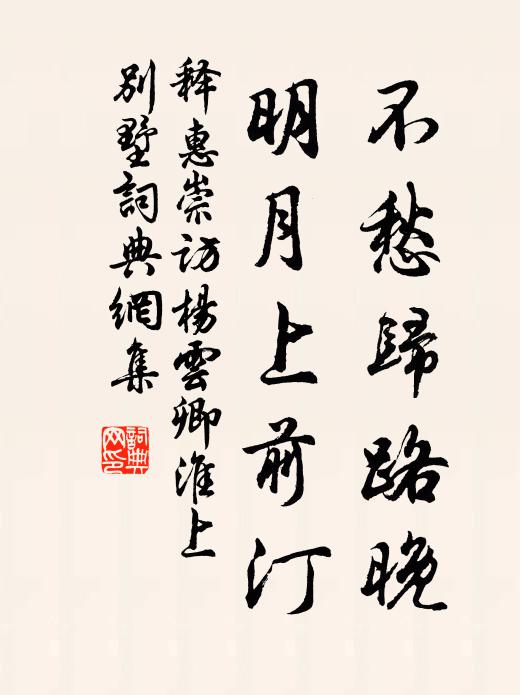 不愁歸路晚
明月上前汀
释惠崇訪楊雲卿淮上
別墅詞典網集
詞典
网印